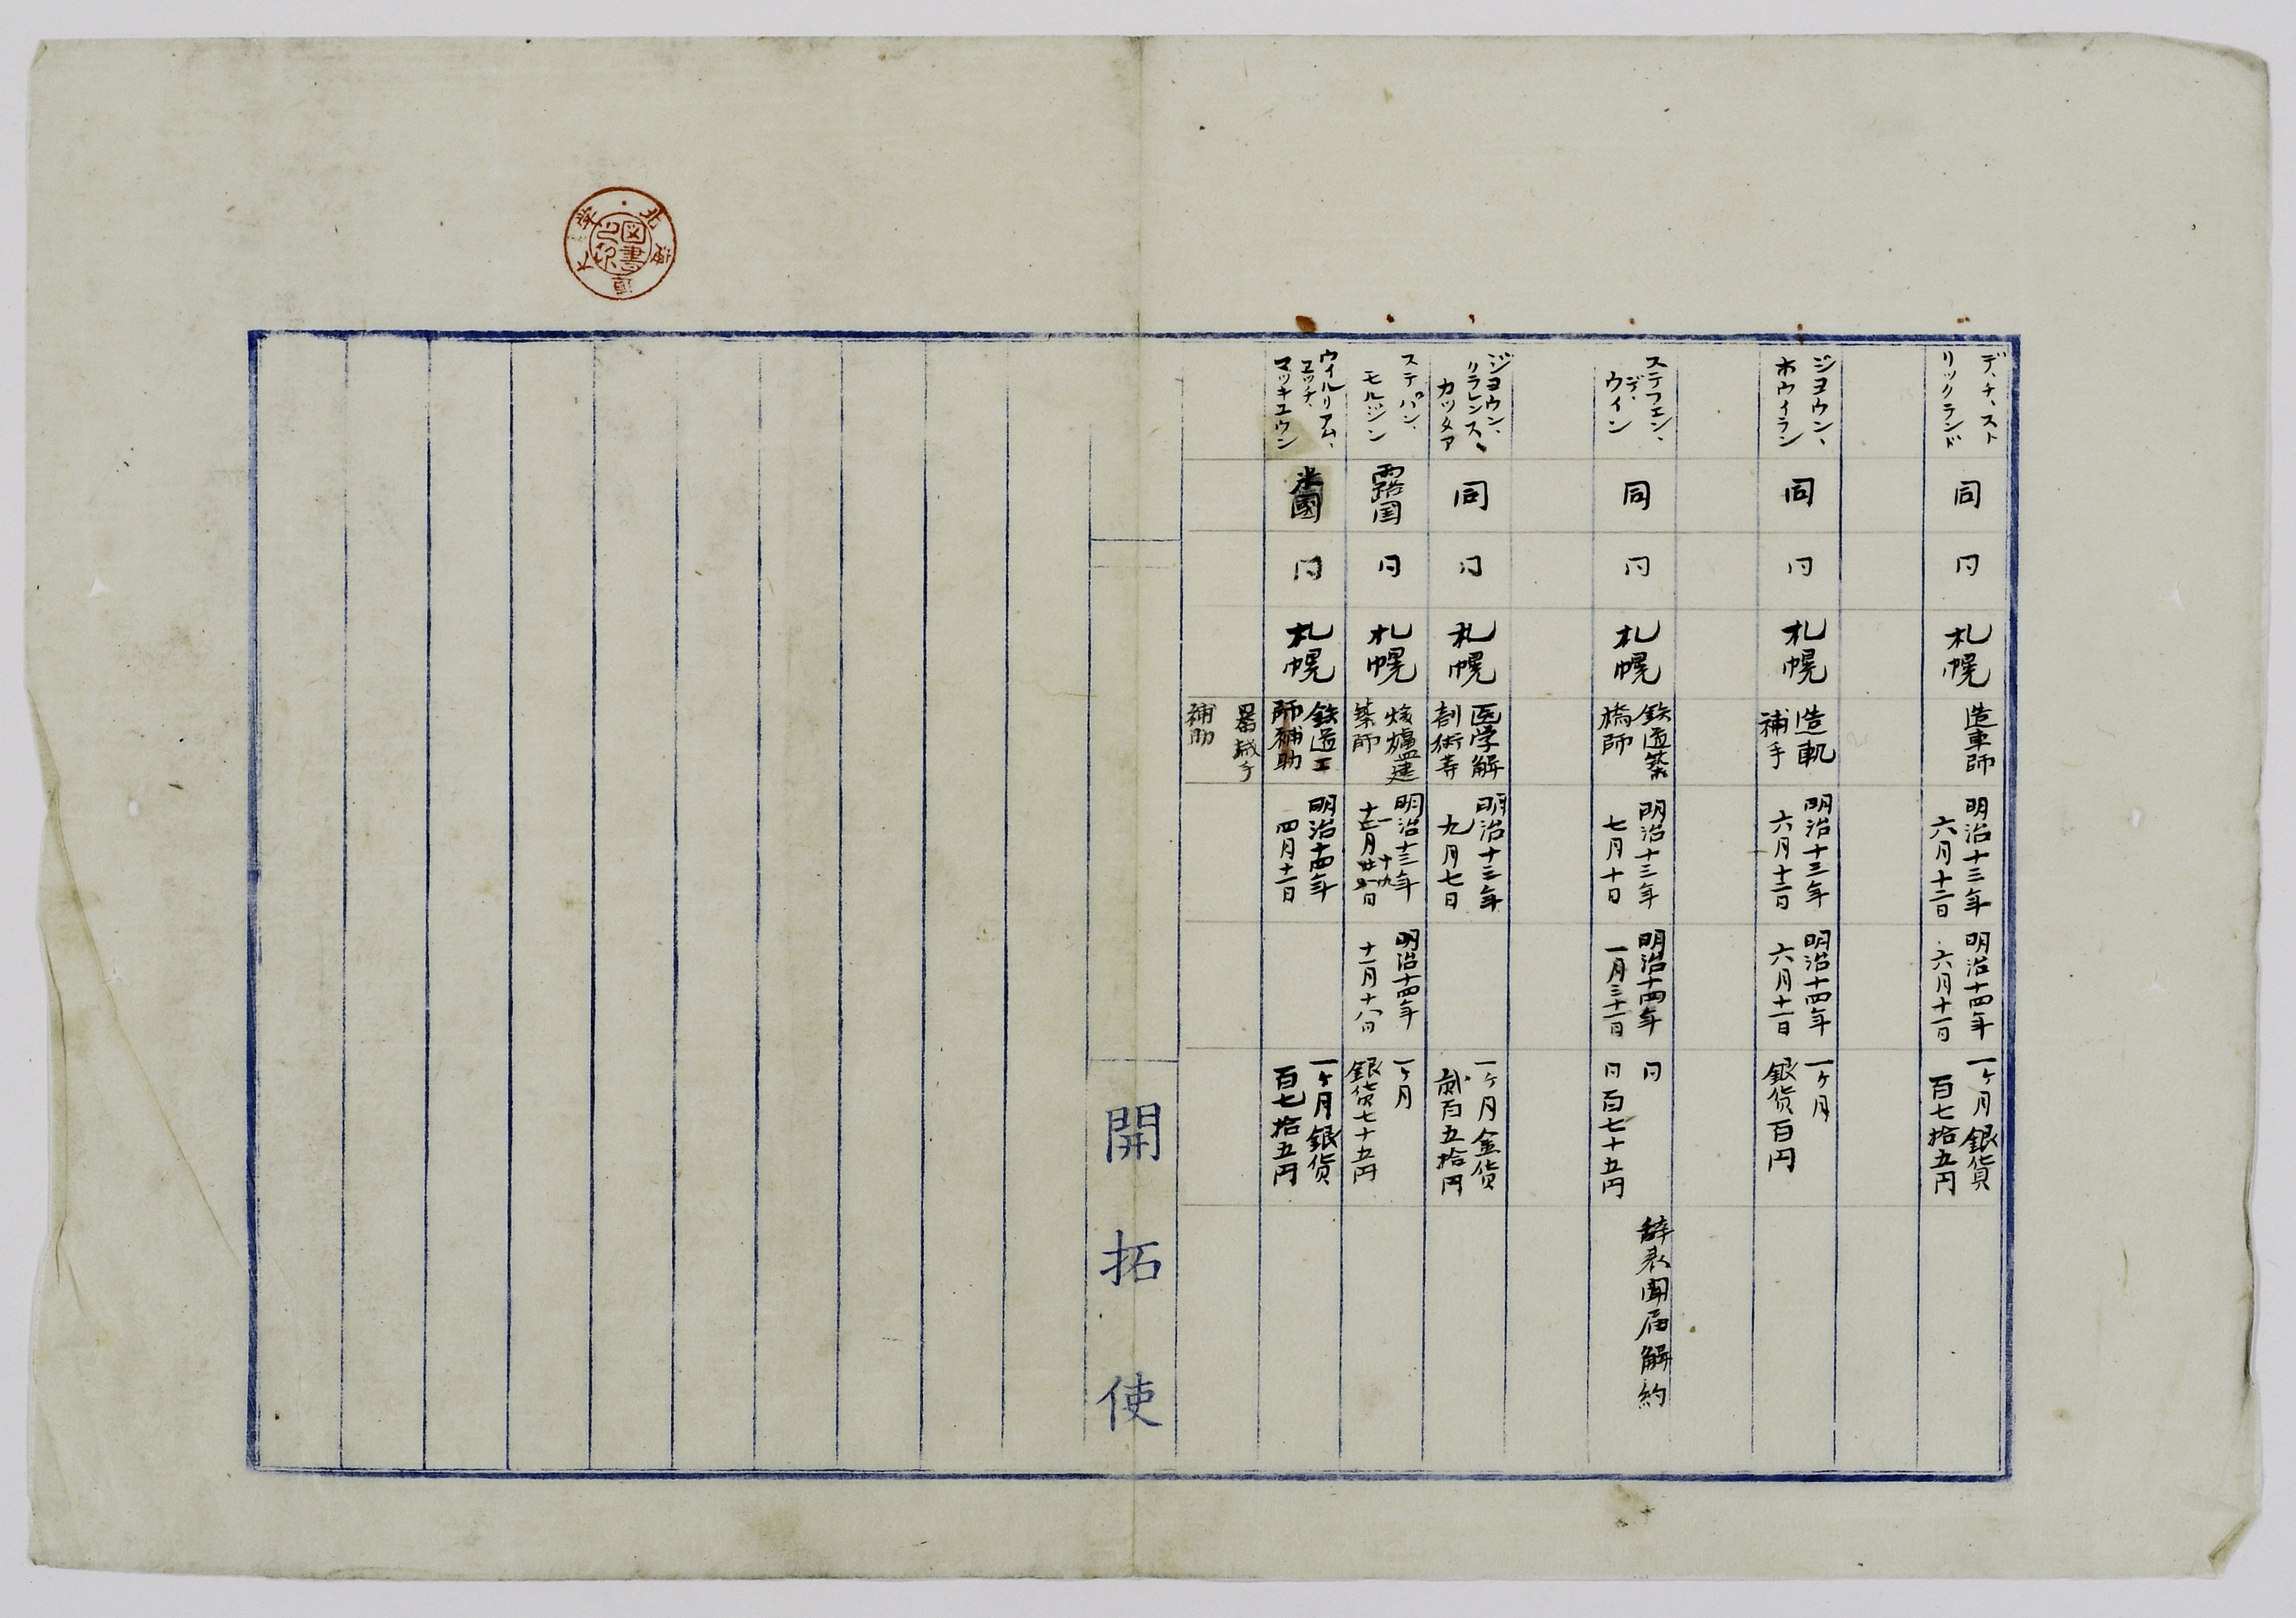 デ、チ、スト
リックランド
同
同
札幌
造車師
明治十三年
六月十二日
明治十四年
六月十一日
一ケ月銀貨
百七拾五円
ジヨウン、
ホウイラン
同
同
札幌
造軌
補手
明治十三年
六月十二日
明治十四年
六月十一日
一ケ月
銀貨百円
ステフエン、
デ、
ウイン
同
同
札幌
鉄道築
橋師
明治十三年
七月十日
明治十四年
一月三十一日
同
同百七十五円
辞表聞届解約
ジヨウン、
クラレンス、
カツタア
同
同
札幌
医学解
剖術等
明治十三年
九月七日
一ケ月金貨
貮百五拾円
ステパン、
モルジン
露国
同
札幌
煖爐建
築師
明治十三年
十一月十九日
明治十四年
十一月十八日
一ケ月
銀貨七十五円
ウイルリアム、
エツチ、
マツキユウン
米國
同
札幌
鉄道工
師補助
明治十四年
四月十二日
一ケ月銀貨
百七拾五円
器械手
補助
開拓使
北海道大学
図書